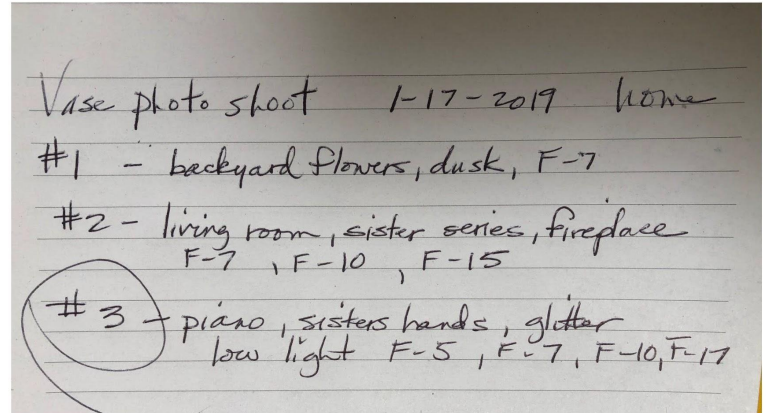 Vase photo shoot 1-17-2019 home
#1 - backyard flowers, dusk, F-7
#2 - living room, sister series, fireplace
F-7, F-10, F-15
#3 - piano, sisters hands, glitter
low light F-5, F-7, F-10, F-17